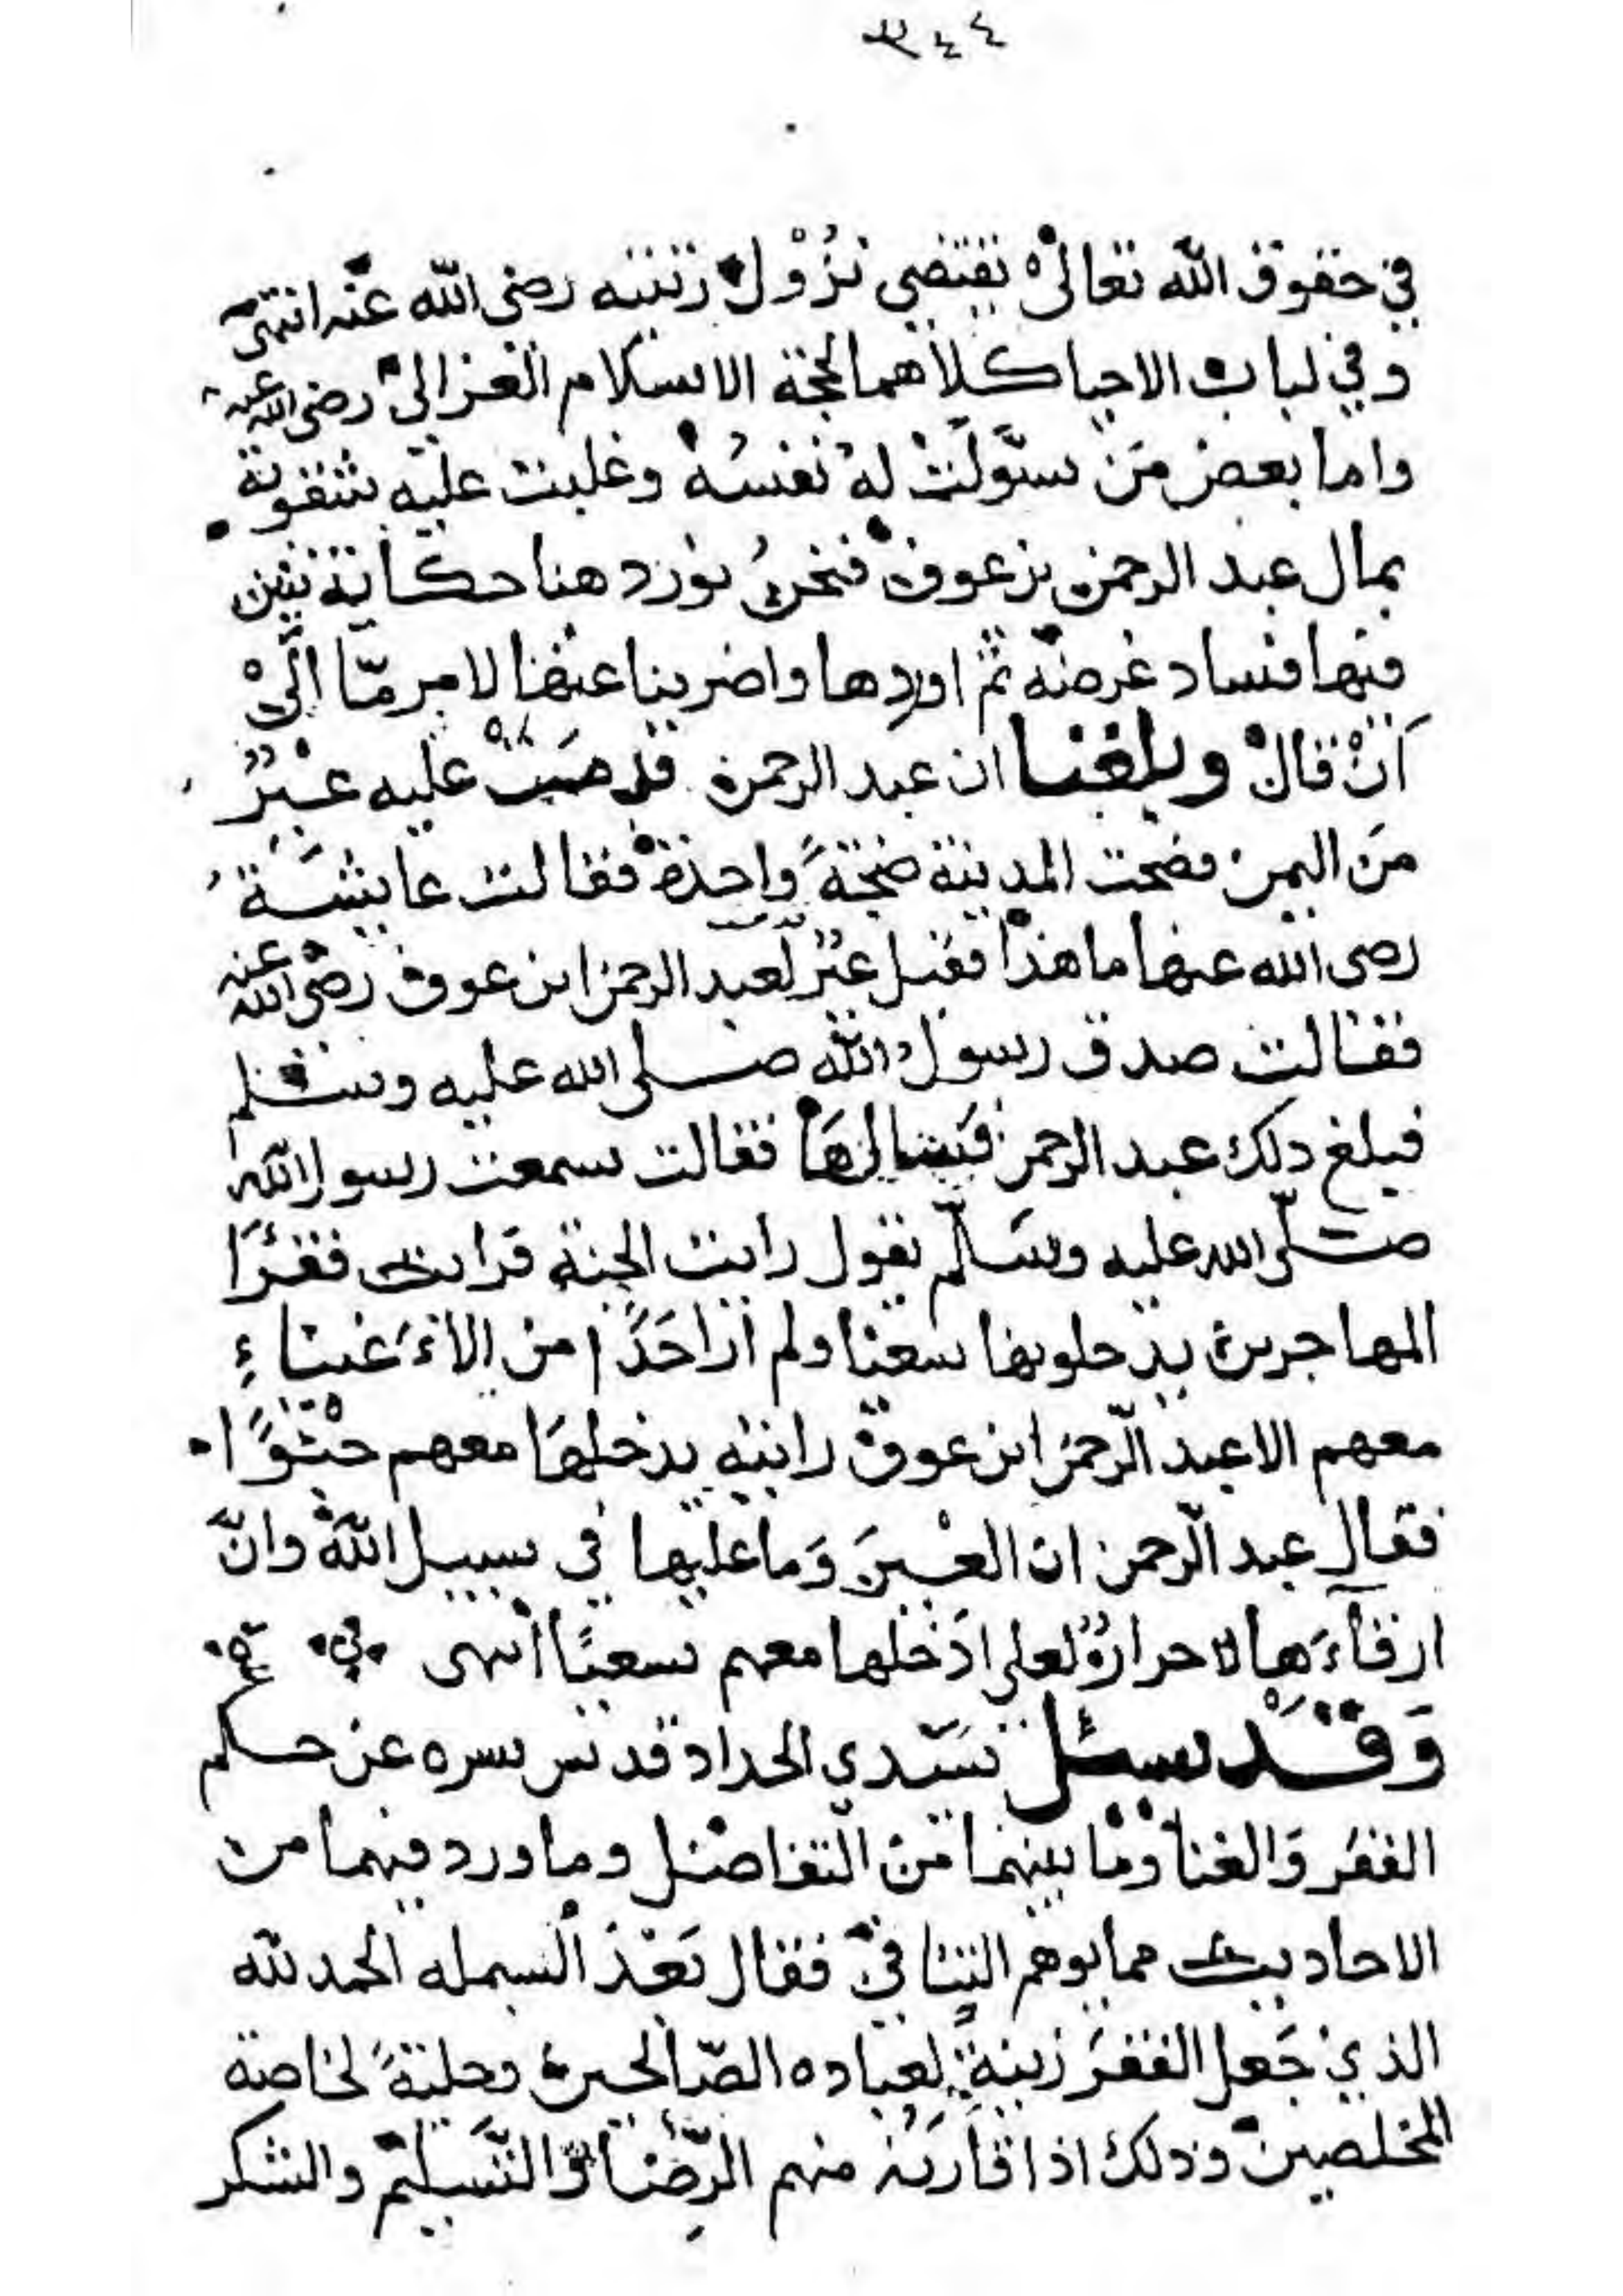 ٣٤٤
في حقوق الله تعالى يقتضي نزول رتبته رضي الله عنه انتهى
وفي لباب الاحيا كلاهما لحجة الاسلام الغزالي رضي الله عنه
واما بعض من سوّلت له نفسه وغلبت عليه شقوته
بمال عبد الرحمن بن عوف فنحن نورد هنا حكاية تبين
فيها فساد غرضه ثم اوردها واضربنا عنها لامر مّا الى
أن قال وبلغنا ان عبد الرحمن قدمت عليه عير
من اليمن فضجت المدينة ضجةً واحدة فقالت عايشة
رضى الله عنها ما هذا فقيل عيرٌ لعبد الرحمن ابن عوف رضي الله عنه
فقالت صدق رسول الله صلى الله عليه وسلم
فبلغ ذلك عبد الرحمن فسالها فقالت سمعت رسول الله
صلّى الله عليه وسلّم يقول رايت الجنة فرايت فقرا
المهاجرين يدخلونها سعيا ولم ار احدًا من الاغنياءِ
معهم الا عبد الرّحمن ابن عوف رايته يدخلها معهم حبْوًا
فقال عبد الرّحمن ان العيرَ وَما عليها في سبيل اللّه وانّ
ارقآءَها لاحرارٌ لعلي ادخلها معهم سعيًا انتهى
وَقَدْ سئل سَيّدي الحداد قدس سره عن حكم
الفقر وَالغنا وما بينهما من التفاضل وما ورد فيهما من
الاحاديث مما يوهم التنافي فقال بَعْدَ البسمله الحمد لله
الذي جَعل الفقرَ زينةً لعباده الصّالحين وحليةً لخاصة
المخلصين وذلك اذا قارَنهُ منهم الرّضا والتّسليم والشكر